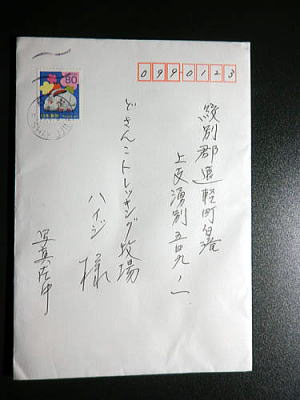 80
0990123
紋別郡遠軽町白滝
上支湧別五四九ノ一
どさんこトレッキング牧場
ハイジ
様
写真在中